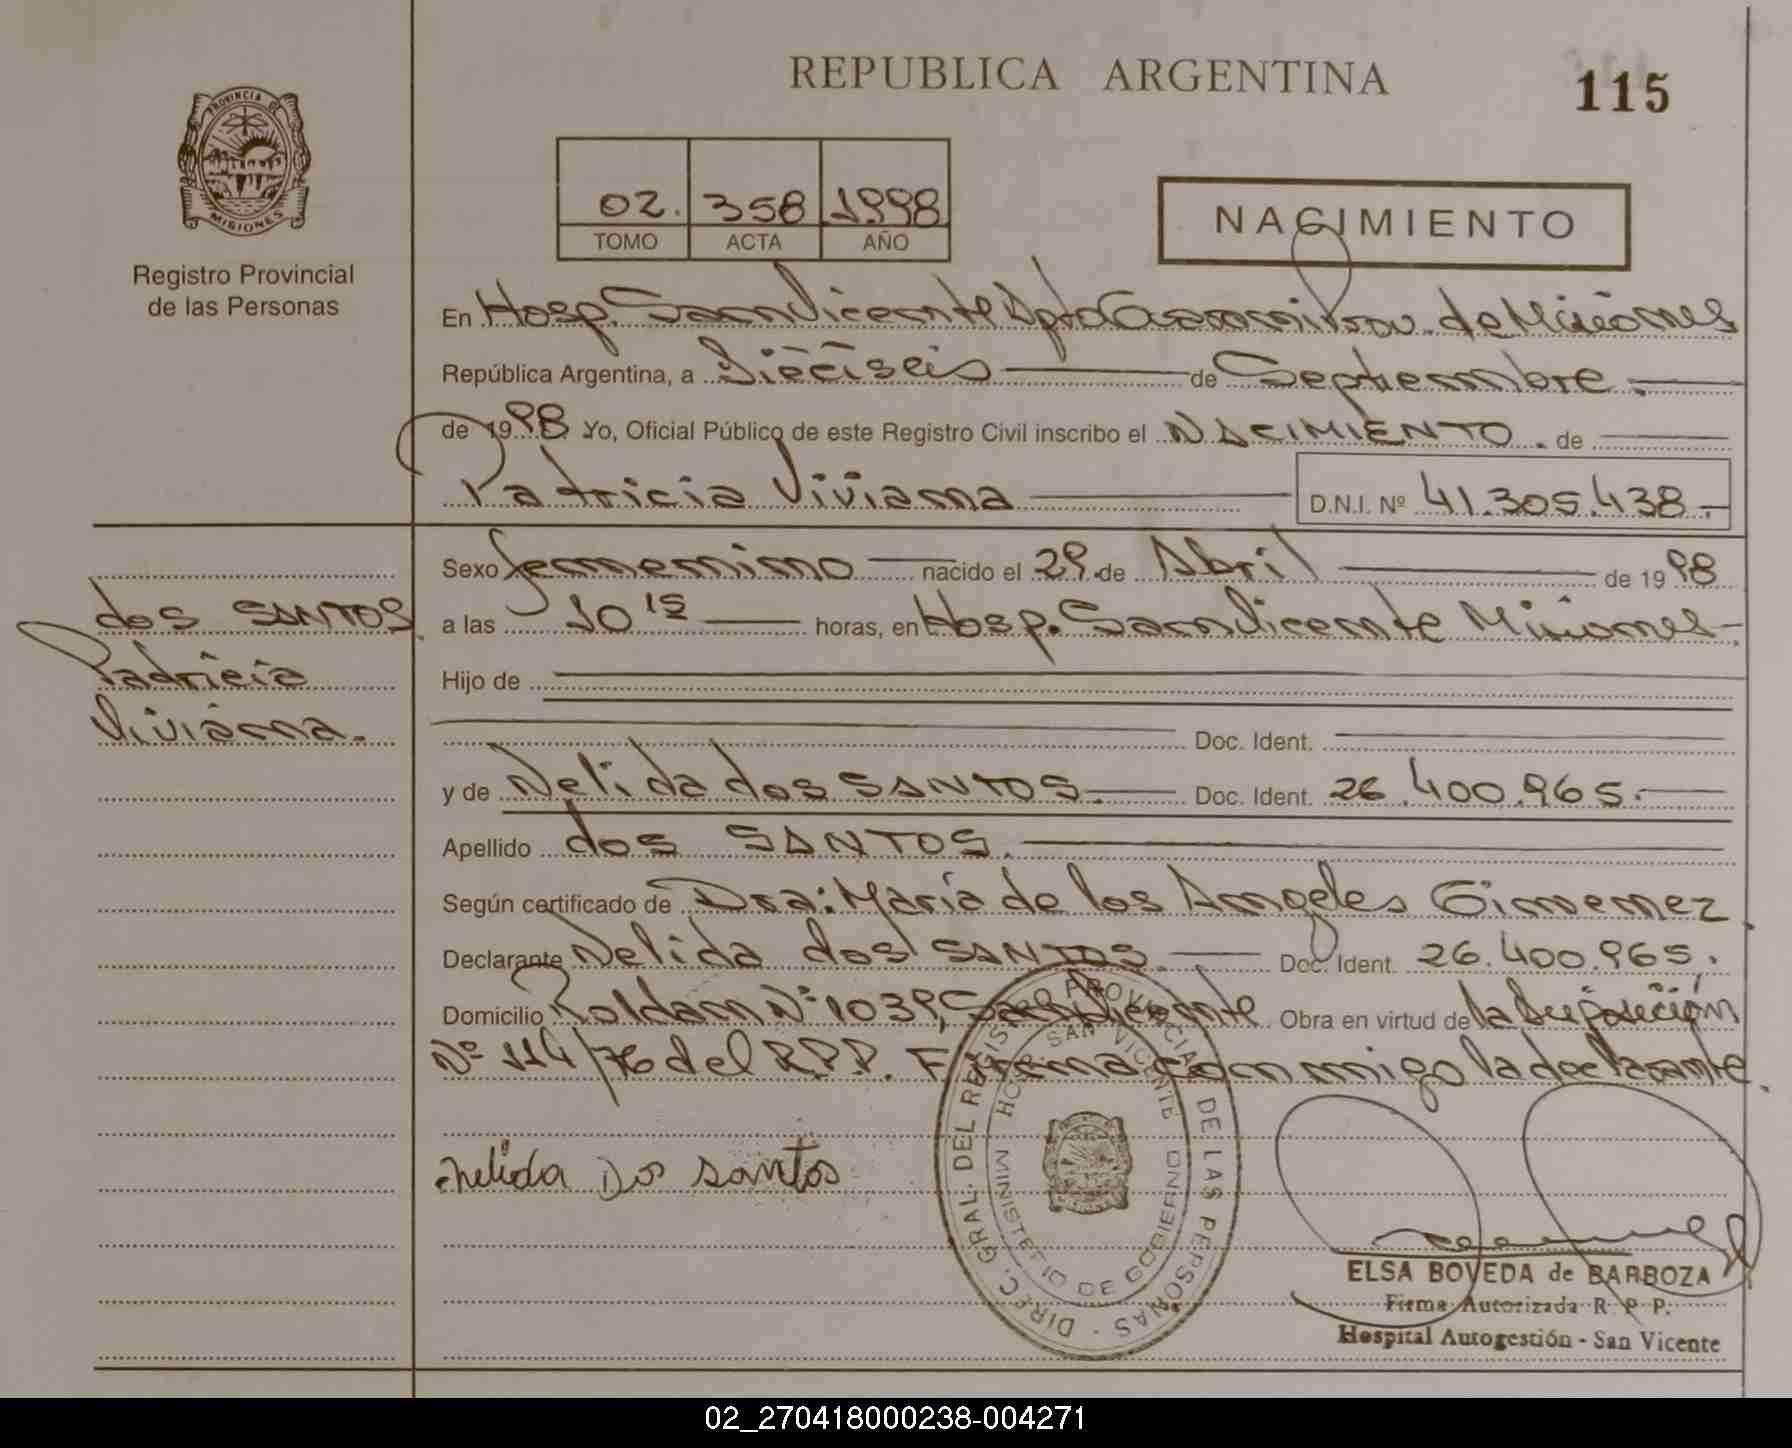 REPUBLICA ARGENTINA
115
PROVINCIA DE
MISIONES
Registro Provincial
de las Personas
02. 358 1998
TOMO ACTA AÑO
NACIMIENTO
En Hosp. San Vicente Dpto Guaraní Prov. de Misiones
República Argentina, a Dieciseis de Septiembre.
de 1998 Yo, Oficial Público de este Registro Civil inscribo el NACIMIENTO. de
Patricia Viviana D.N.I. Nº 41.305.438.-
Sexo femenino nacido el 29. de Abril de 1998
dos SANTOS
Patricia
Viviana.
a las 10 15 horas, en Hosp. San Vicente Misiones-
Hijo de
Doc. Ident.
y de Nelida dos SANTOS. Doc. Ident. 26.400.965.
Apellido dos SANTOS.
Según certificado de Dra: María de los Angeles Gimenez
Declarante Nelida dos SANTOS. Doc. Ident. 26.400.965.
Domicilio Roldan Nº 1039, San Vicente Obra en virtud de la Disposición
Nº 114/76 del R.P.P. Firma conmigo la declarante.
Nelida Dos santos
DIREC. GRAL. DEL REGISTRO PROVINCIAL DE LAS PERSONAS -
HOSP SAN VICENTE
MINISTERIO DE GOBIERNO
ELSA BOVEDA de BARBOZA
Firma Autorizada R. P. P.
Hospital Autogestión - San Vicente
02_270418000238-004271